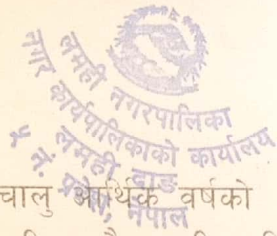 लमही नगरपालिका
नगर कार्यपालिकाको कार्यालय
लमही, दाङ
प्रदेश, नेपाल
चालु आर्थिक वर्षको